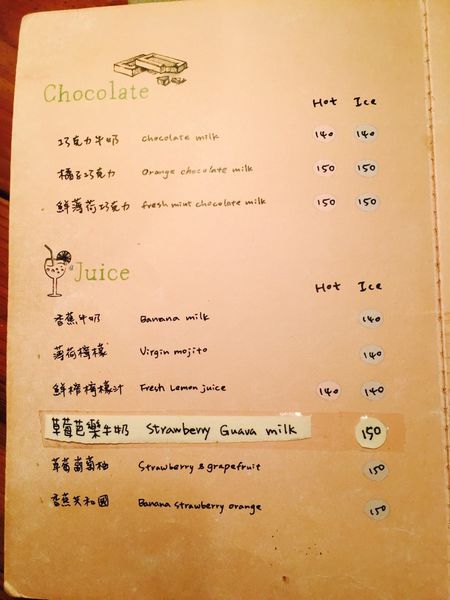 Chocolate
Hot Ice
巧克力牛奶 chocolate milk 140 140
橘子巧克力 Orange chocolate milk 150 150
鮮薄荷巧克力 fresh mint chocolate milk 150 150
Juice
Hot Ice
香蕉牛奶 Banana milk 140
薄荷檸檬 Virgin mojito 140
鮮榨檸檬汁 Fresh Lemon juice 140 140
草莓芭樂牛奶 Strawberry Guava milk 150
草莓葡萄柚 Strawberry & grapefruit 150
香蕉共和國 Banana strawberry orange 150